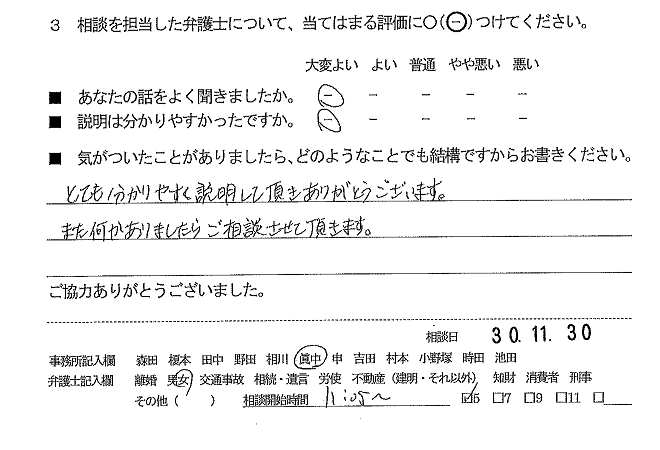 3 相談を担当した弁護士について、当てはまる評価に○(㊀)つけてください。
大変よい よい 普通 やや悪い 悪い
■ あなたの話をよく聞きましたか。 － － － － －
■ 説明は分かりやすかったですか。 － － － － －
■ 気がついたことがありましたら、どのようなことでも結構ですからお書きください。
とても分かりやすく説明して頂きありがとうございます。
また何かありましたらご相談させて頂きます。
ご協力ありがとうございました。
相談日 30.11.30
事務所記入欄 森田 榎本 田中 野田 相川 眞中 申 吉田 村本 小野塚 時田 池田
弁護士記入欄 離婚 男女 交通事故 相続・遺言 労使 不動産（建明・それ以外） 知財 消費者 刑事
その他（ ） 相談開始時間 11:05〜 ☑5 □7 □9 □11 □